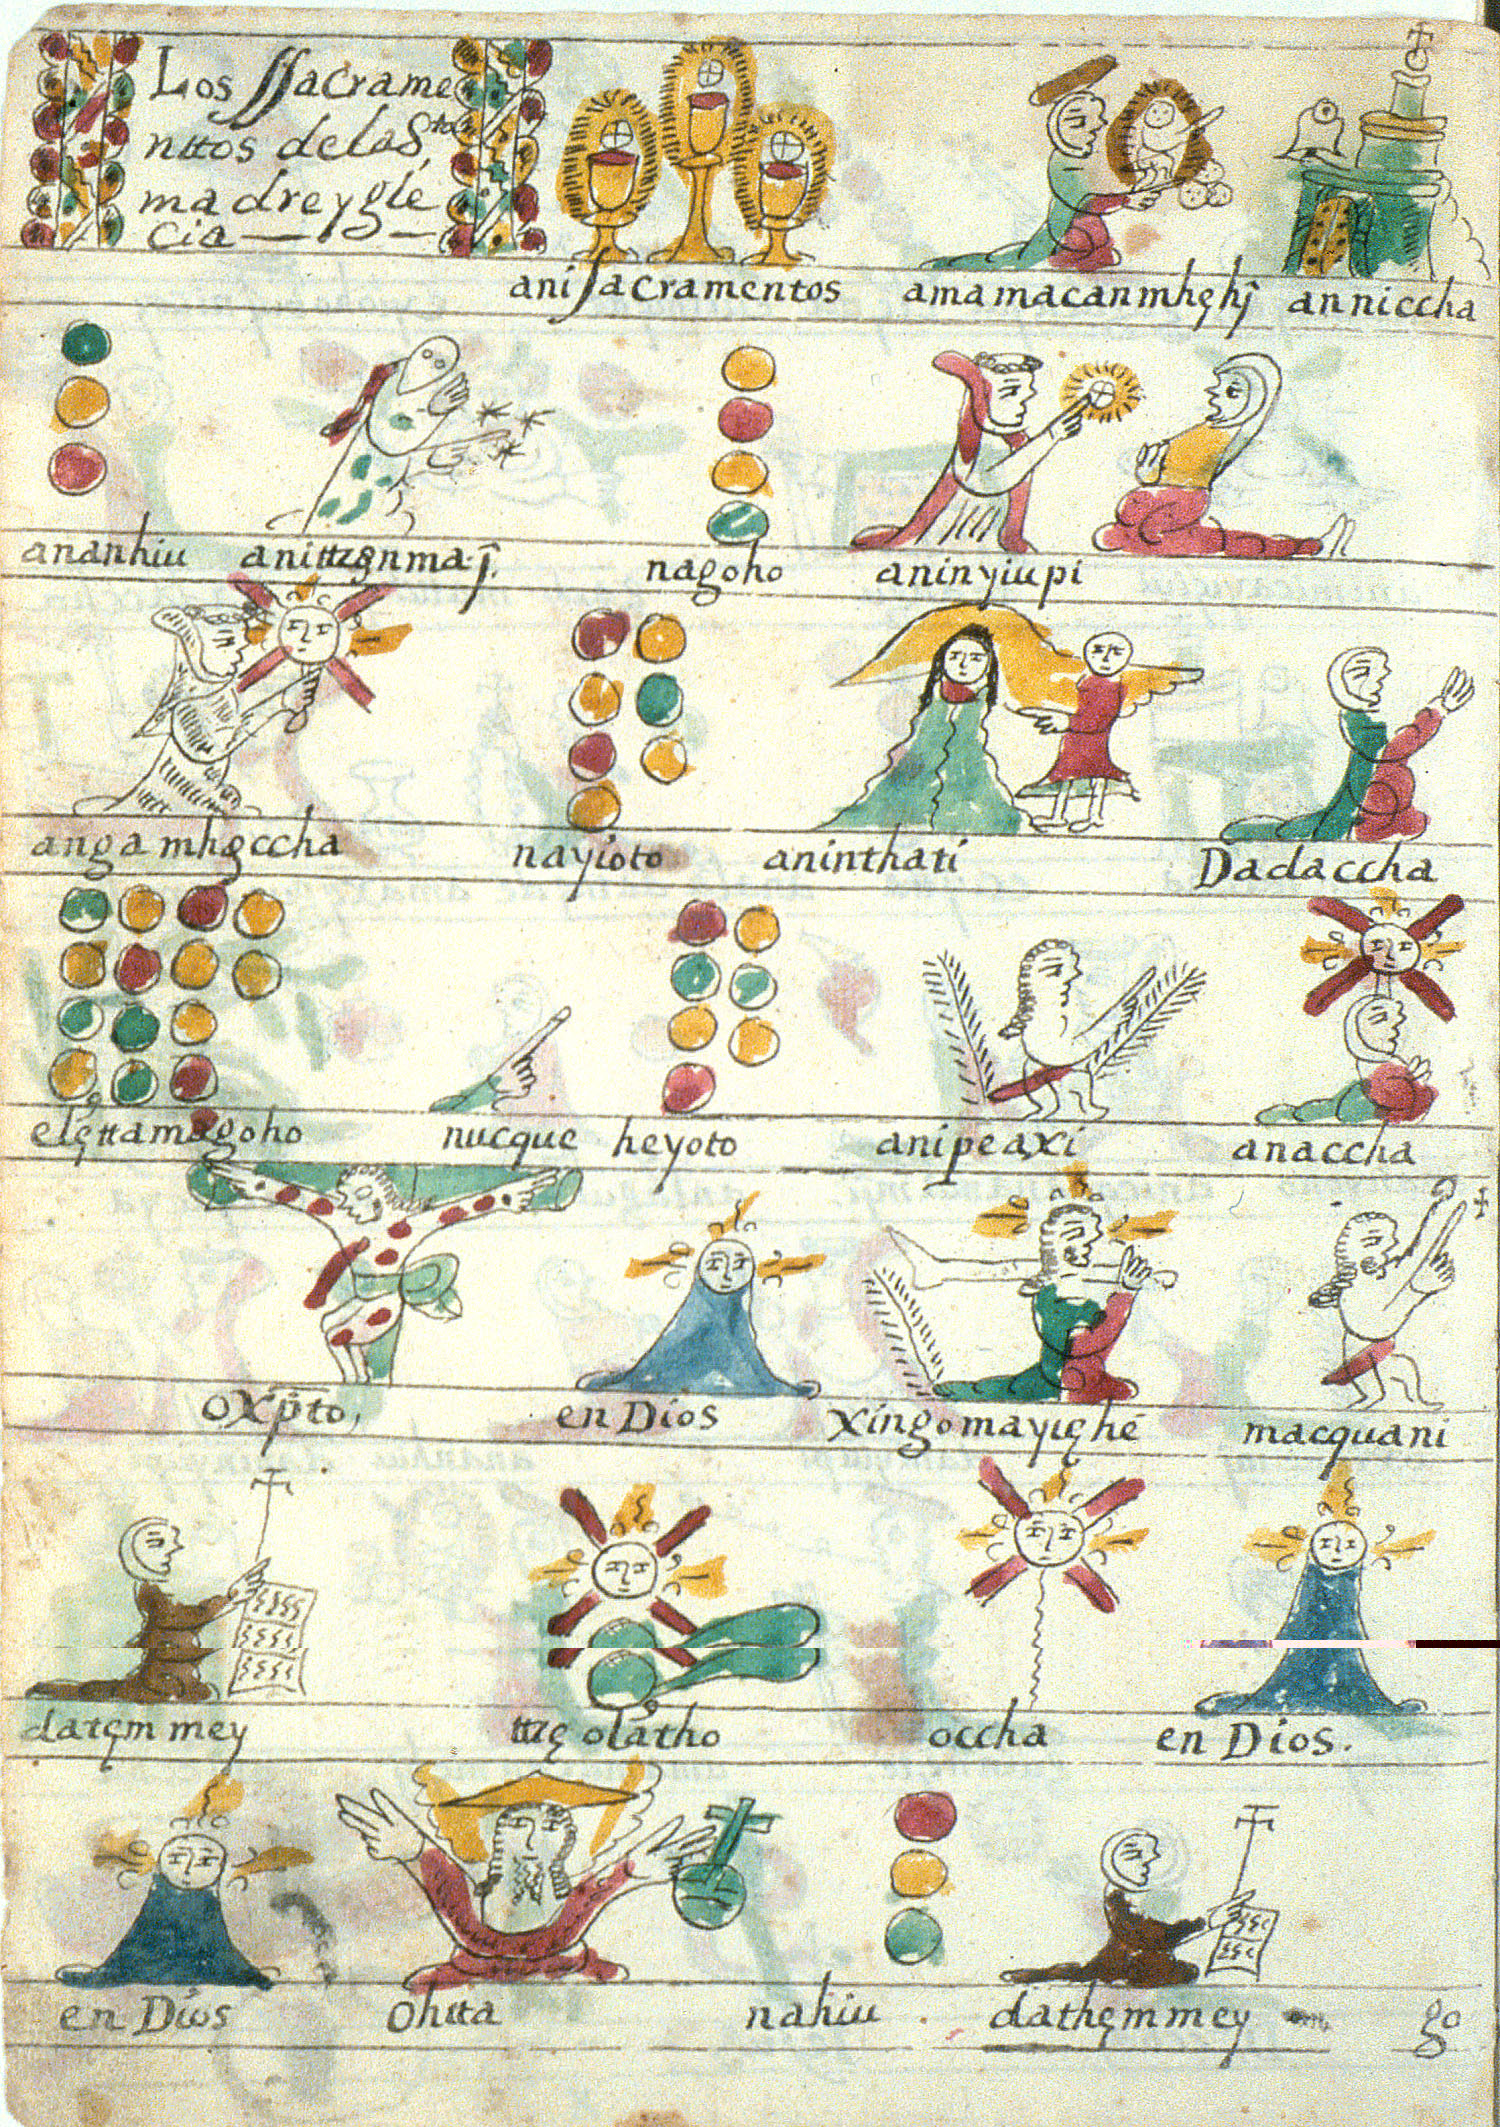 Los ssacrame
nttos de la Sta
madre ygle
cia
ani sacramentos amamacanmhęhȷ̂ anniccha
ananhiu nagoho aninyiupi
angamhęccha nayioto aninthati Dadaccha
elęttamagoho nucque heyoto anipeaxi anaccha
oxp̄to, en Dios xingomayięhé macquani
datęmmey ttzę olatho occha en Dios.
en Dios ohtta nahiu dathęmmey
go